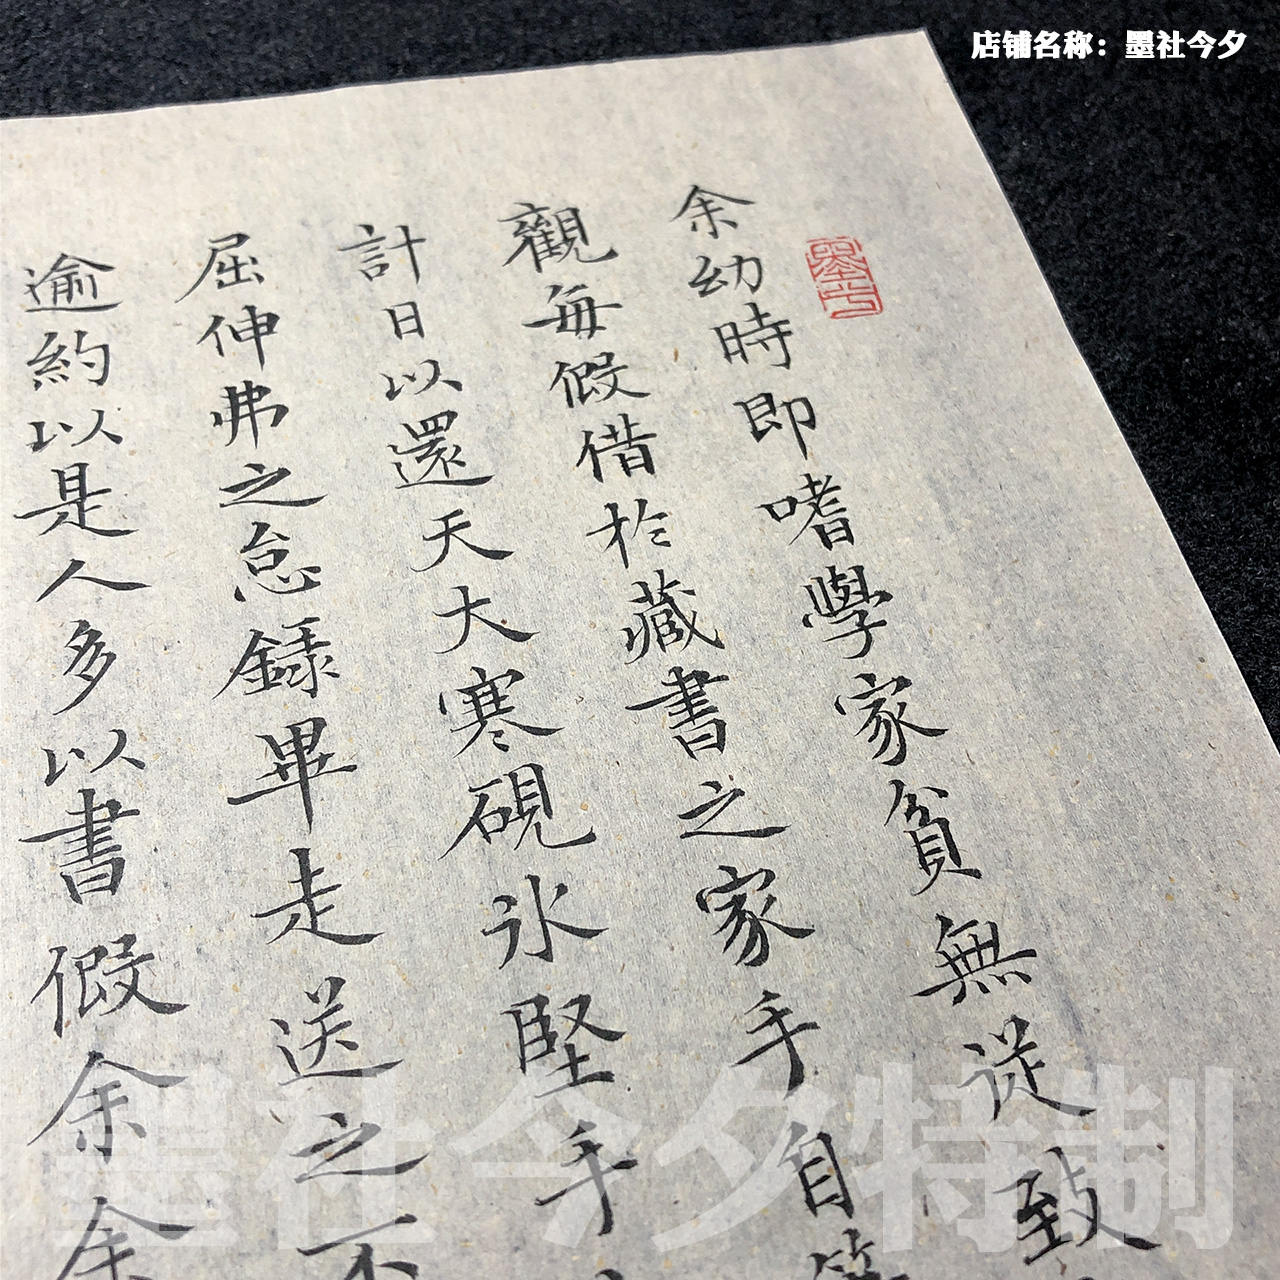 店铺名称：墨社今夕
余幼時即嗜學家貧無從致
觀每假借於藏書之家手自筆
計日以還天大寒硯氷堅手
屈伸弗之怠録畢走送之不
逾約以是人多以書假余余
墨社今夕特制